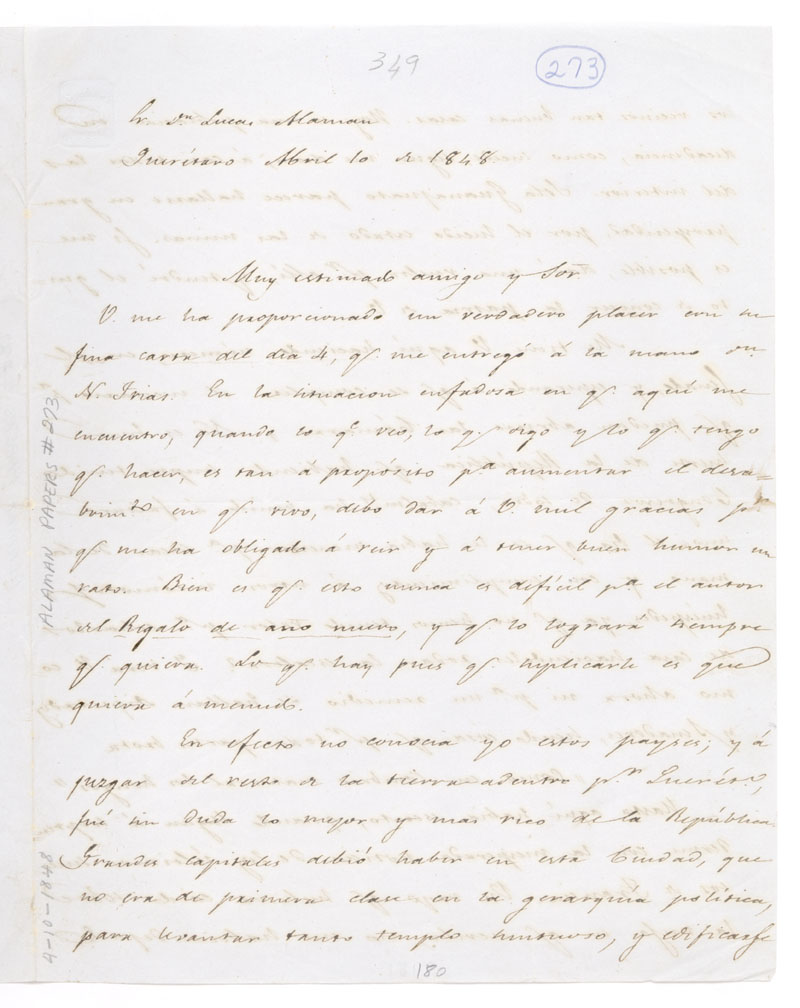 349
273
Sr. Dn. Lucas Alaman
Querétaro Abril 10 de 1848
Muy estimado amigo y Sor
V. me ha proporcionado un verdadero placer con su
fina carta del dia 4, q.e me entregó á la mano Dn.
N. Frias. En la situacion enfadosa en q.e aquí me
encuentro, quando lo q.e veo, lo q.e oigo y lo q.e tengo
q.e hacer, es tan á propósito p.a aumentar el desa=
brim.to en q.e vivo, debo dar á V. mil gracias p.r
q.e me ha obligado á reir y á tener buen humor un
rato. Bien es q.e esto nunca es difícil p.a el autor
del Regalo de año nuevo, y q.e lo logrará siempre
q.e quiera. Lo q.e hay pues q.e suplicarle es que
quiera á menudo.
En efecto no conocia yo estos payses; y á
juzgar del resto de la tierra adentro p.r Queret.o,
fué sin duda lo mejor y mas rico de la República
Grandes capitales debió haber en esta Ciudad, que
no era de primera clase en la gerarquía política,
para levantar tanto templo suntuoso, y edificarse
180
ALAMAN PAPERS # 273
4-10-1848